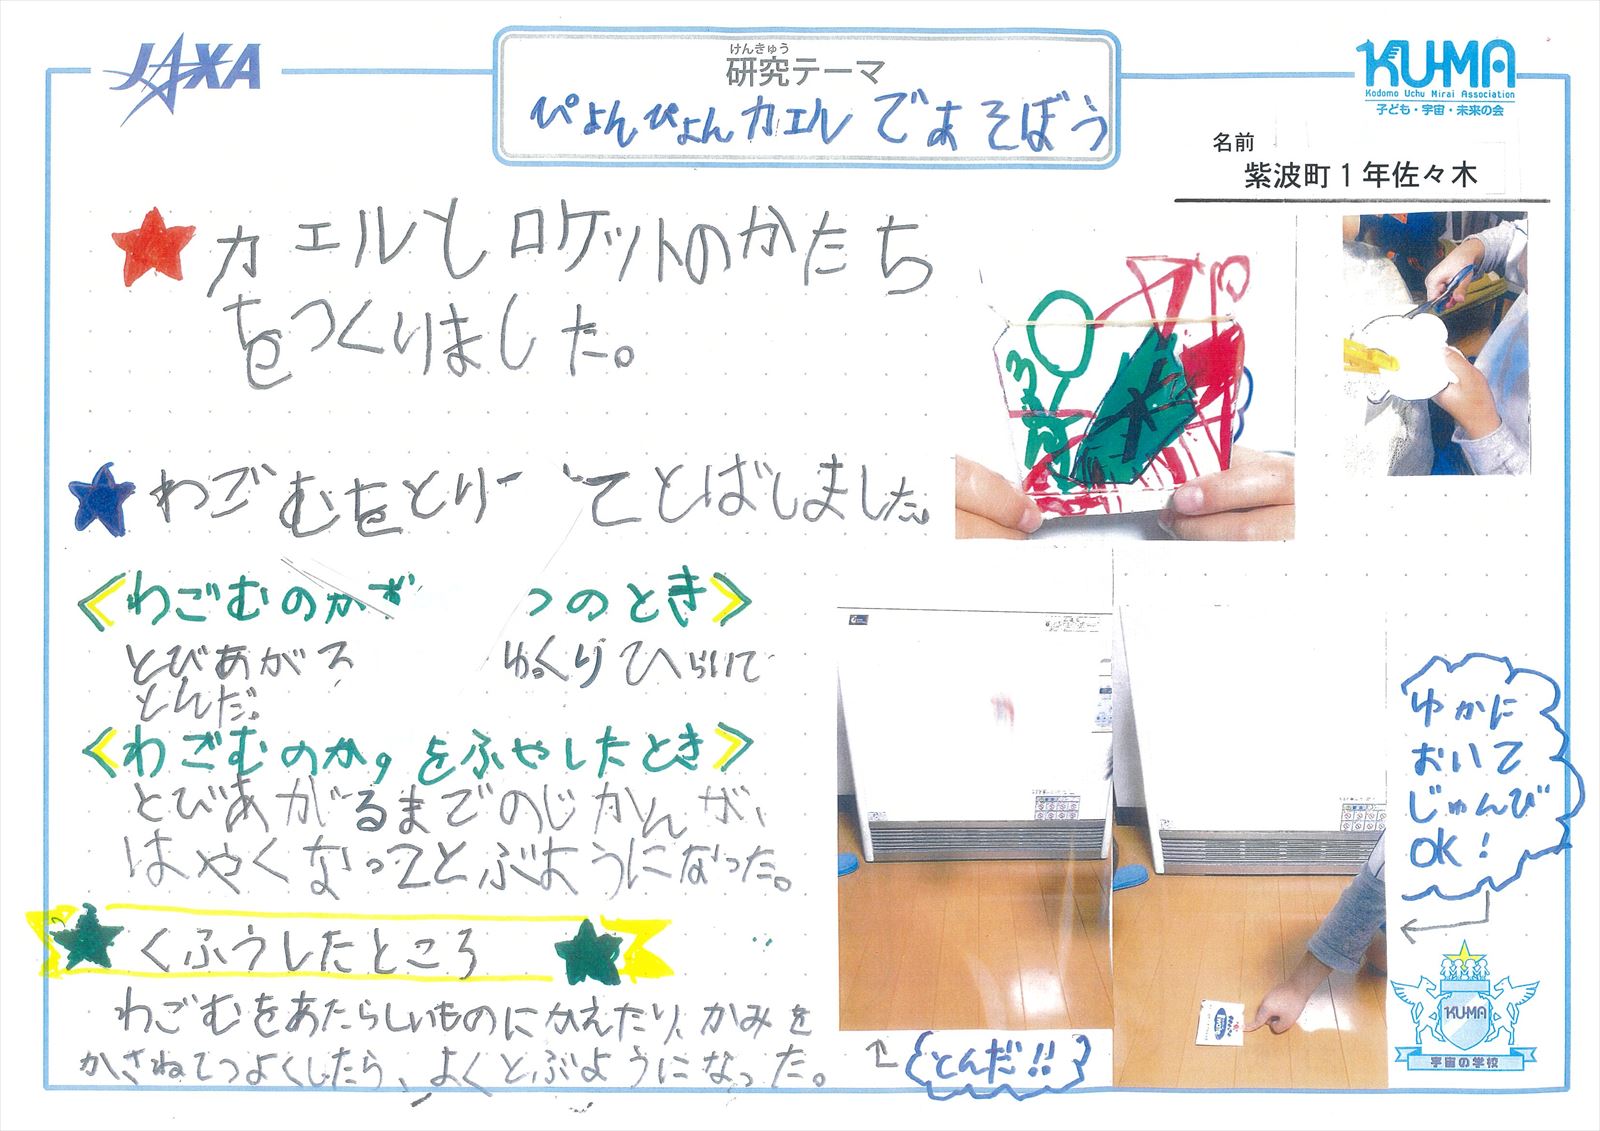 JAXA
けんきゅう
研究テーマ
ぴょんぴょんカエルであそぼう
KU-MA
Kodomo Uchu Mirai Association
子ども・宇宙・未来の会
名前
紫波町1年佐々木
カエルとロケットのかたち
をつくりました。
わごむをとり
てとばしました。
<わごむのかず
つのとき>
とびあがる
ゆっくりひらいて
とんだ。
<わごむのかずをふやしたとき>
とびあがるまでのじかんが、
はやくなってとぶようになった。
くふうしたところ
わごむをあたらしいものにかえたり、かみを
かさねてつよくしたら、よくとぶようになった。
とんだ!!
ゆかに
おいて
じゅんび
OK!
KUMA
宇宙の学校